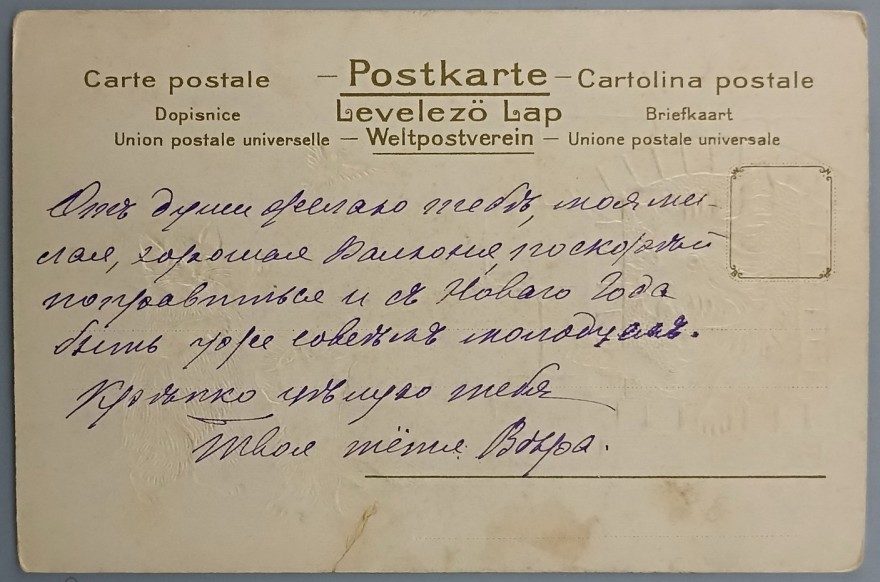 Carte postale — Postkarte — Cartolina postale
Dopisnice Levelező Lap Briefkaart
Union postale universelle — Weltpostverein — Unione postale universale
Отъ души желаю тебѣ, моя ми-
лая, хорошая Валюня, поскорѣй
поправиться и съ Новаго Года
быть уже совсѣмъ молодцомъ.
Крѣпко цѣлую тебя
Твоя тётя Вѣра.